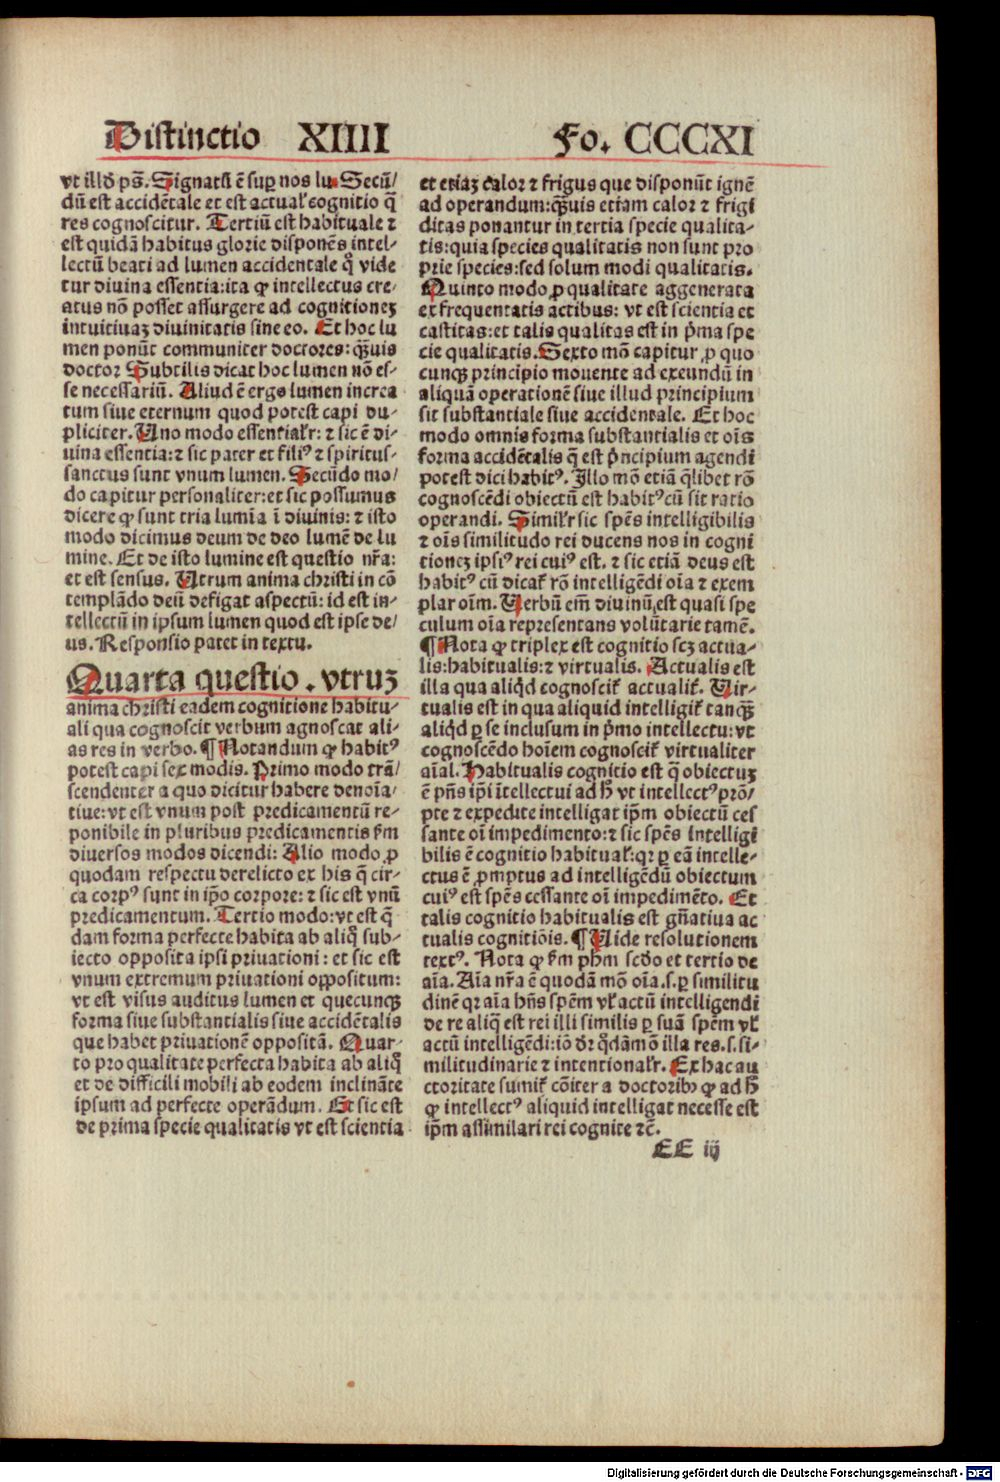 Distinctio XIIII
Fo. CCCXI
vt illd̄ ps̄. Signatū ē suꝑ nos lu. Secū/
dū est accidētale et est actualꝭ cognitio q̄
res cognoscitur. Tertiū est habituale ⁊
est quidā habitus glorie disponēs intel-
lectū beati ad lumen accidentale qͦ vide
tur diuina essentia: ita ꝙ intellectus cre-
atus nō posset assurgere ad cognitioneꝫ
intuitiuaꝫ diuinitatis sine eo. Et hoc lu
men ponūt communiter doctores: q̄uis
doctor Subtilis dicat hoc lumen nō es-
se necessariū. Aliud ē ergo lumen increa
tum siue eternum quod potest capi du-
pliciter. Uno modo essentialꝭr: ⁊ sic ē di-
uina essentia: ⁊ sic pater et filiꝰ ⁊ spiritus-
sanctus sunt vnum lumen. Secūdo mo/
do capitur personaliter: et sic possumus
dicere ꝙ sunt tria lumīa ī diuinis: ⁊ isto
modo dicimus deum de deo lumē de lu
mine. Et de isto lumine est questio nr̄a:
et est sensus. Utrum anima christi in cō
templādo deū defigat aspectū: id est in-
tellectū in ipsum lumen quod est ipse de/
us. Responsio patet in textu.
Quarta questio. vtruꝫ
anima christi eadem cognitione habitu-
ali qua cognoscit verbum agnoscat ali-
as res in verbo. ¶ Notandum ꝙ habitꝰ
potest capi sex modis. Primo modo trā/
scendenter a quo dicitur habere denoīa-
tiue: vt est vnum post predicamentū re-
ponibile in pluribus predicamentis ẜm
diuersos modos dicendi: Alio modo ꝓ
quodam respectu derelicto ex his q̄ cir-
ca corpꝰ sunt in ip̄o corpore: ⁊ sic est vnū
predicamentum. Tertio modo: vt est q̄
dam forma perfecte habita ab aliqͦ sub-
iecto opposita ipsi priuationi: et sic est
vnum extremum priuationi oppositum:
vt est visus auditus lumen et quecunqꝫ
forma siue substantialis siue accidētalis
que habet priuationē oppositā. Quar-
to pro qualitate perfecta habita ab aliqͦ
et de difficili mobili ab eodem inclināte
ipsum ad perfecte operādum. Et sic est
de prima specie qualitatis vt est scientia
et etiaꝫ calor ⁊ frigus que disponūt ignē
ad operandum: q̄uis etiam calor ⁊ frigi
ditas ponantur in tertia specie qualita-
tis: quia species qualitatis non sunt pro
prie species: sed solum modi qualitatis.
Quinto modo ꝓ qualitate aggenerata
ex frequentatis actibus: vt est scientia et
castitas: et talis qualitas est in pͥma spe
cie qualitatis. Sexto mō capitur ꝓ quo
cunqꝫ principio mouente ad exeundū in
aliquā operationē siue illud principium
sit substantiale siue accidentale. Et hoc
modo omnis forma substantialis et oīs
forma accidētalis q̄ est pͥncipium agendi
potest dici habitꝰ. Illo mō etiā q̄libet rō
cognoscēdi obiectū est habitꝰ cū sit ratio
operandi. Similꝭr sic spēs intelligibilis
⁊ oīs similitudo rei ducens nos in cogni
tioneꝫ ipsiꝰ rei cuiꝰ est. ⁊ sic etiā deus est
habitꝰ cū dicat̄ rō intelligēdi oīa ⁊ exem
plar oīm. Uerbū em̄ diuinū est quasi spe
culum oīa representans volūtarie tamē.
¶ Nota ꝙ triplex est cognitio scꝫ actua-
lis: habitualis: ⁊ virtualis. Actualis est
illa qua aliqͥd cognoscit̄ actualit̄. Uir-
tualis est in qua aliquid intelligit̄ tanqꝫ
aliqͥd ꝑ se inclusum in pͥmo intellectu: vt
cognoscēdo hoīem cognoscit̄ virtualiter
aīal. Habitualis cognitio est q̄ obiectuꝫ
ē pn̄s ip̄i ītellectui ad hͦ vt intellectꝰ prō/
pte ⁊ expedite intelligat ip̄m obiectū ces
sante oī impedimento: ⁊ sic spēs intelligi
bilis ē cognitio habitualꝭ: qꝛ ꝑ eā intelle-
ctus ē ꝓmptus ad intelligēdū obiectum
cuiꝰ est spēs cessante oī impedimēto. Et
talis cognitio habitualis est gn̄atiua ac
tualis cognitiōis. ¶ Uide resolutionem
textꝰ. Nota ꝙ ẜm ph̄m scd̄o et tertio de
aīa. Aīa nr̄a ē quodā mō oīa .s. ꝑ similitu
dinē qꝛ aīa hn̄s spēm vl̓ actū intelligendi
de re aliq̄ est rei illi similis ꝑ suā spēm vl̓
actū intelligēdi: iō dr̄ qͥdāmō illa res .s. si-
militudinarie ⁊ intentionalꝭr. Ex hac au
ctoritate sumit̄ cōiter a doctoribꝰ ꝙ ad hͦ
ꝙ intellectꝰ aliquid intelligat necesse est
ip̄m assimilari rei cognite ⁊c̄.
EE iij
Digitalisierung gefördert durch die Deutsche Forschungsgemeinschaft - DFG